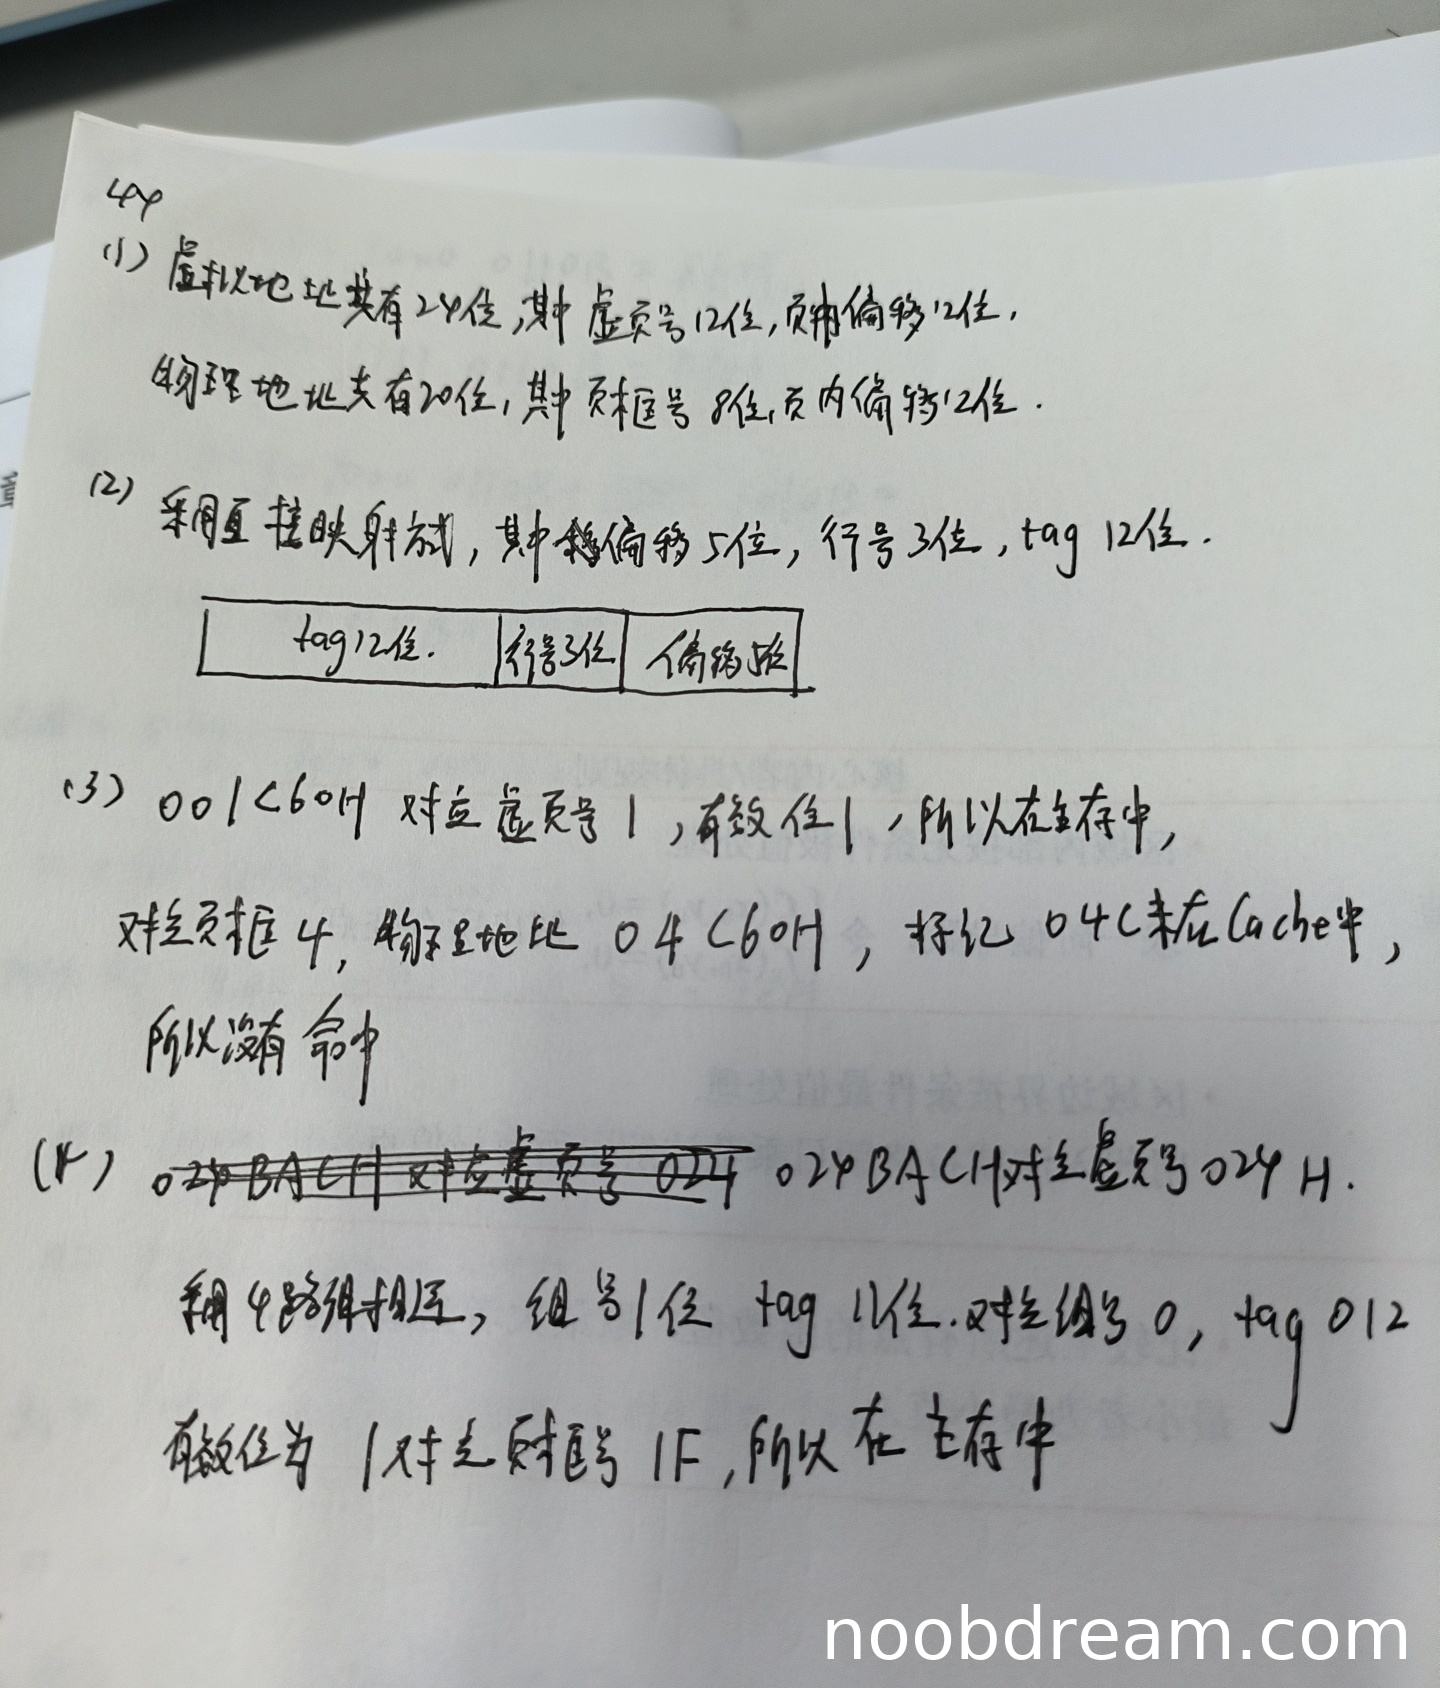 44
(1) 虚拟地址共有24位,其中虚页号12位,页内偏移12位.
物理地址共有20位,其中页框号8位,页内偏移12位.
(2) 采用直接映射方式,其中偏移5位,行号3位,tag 12位.
tag12位. 行号3位 偏移5位
(3) 001C60H 对应虚页号1,有效位1,所以在主存中,
对应页框4,物理地址 04C60H,标记 04C未在Cache中,
所以没有命中
(4) 024BACH 对应虚页号 024 024BACH对应虚页号024H.
采用4路组相联,组号1位 tag 11位.对应组号0,tag 012
有效位为1对应页框号1F,所以在主存中
noobdream.com